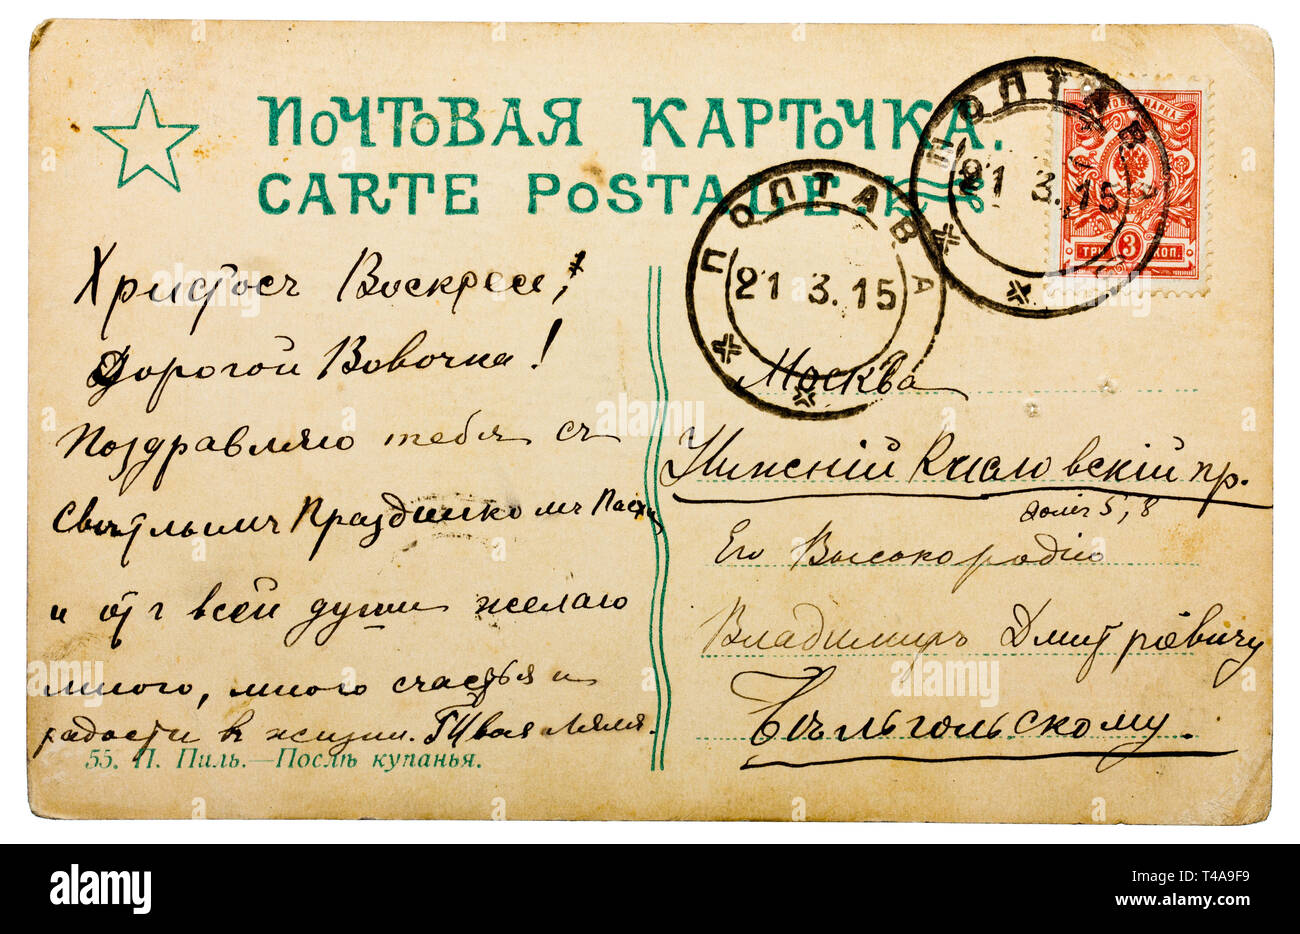 ПОЧТОВАЯ КАРТОЧКА.
CARTE POSTALE.
Христосъ Воскресе!
Дорогой Вовочка!
Поздравляю тебя съ
Свѣтлымъ Праздникомъ Пасхи
и отъ всей души желаю
много, много счастья и
радости въ жизни. Твоя Ляля.
55. П. Пиль.—Послѣ купанья.
ПОЛТАВА
21 3.15
ПОЛТАВА
21 3.15
МАРКА
ТРИ 3 КОП.
Москва
Нижній Кисловскій пр.
домъ 5, 8
Его Высокородію
Владимиръ Дмитріевичу
Бѣльгольскому.
alamy
Image ID: T4A9F9
www.alamy.com